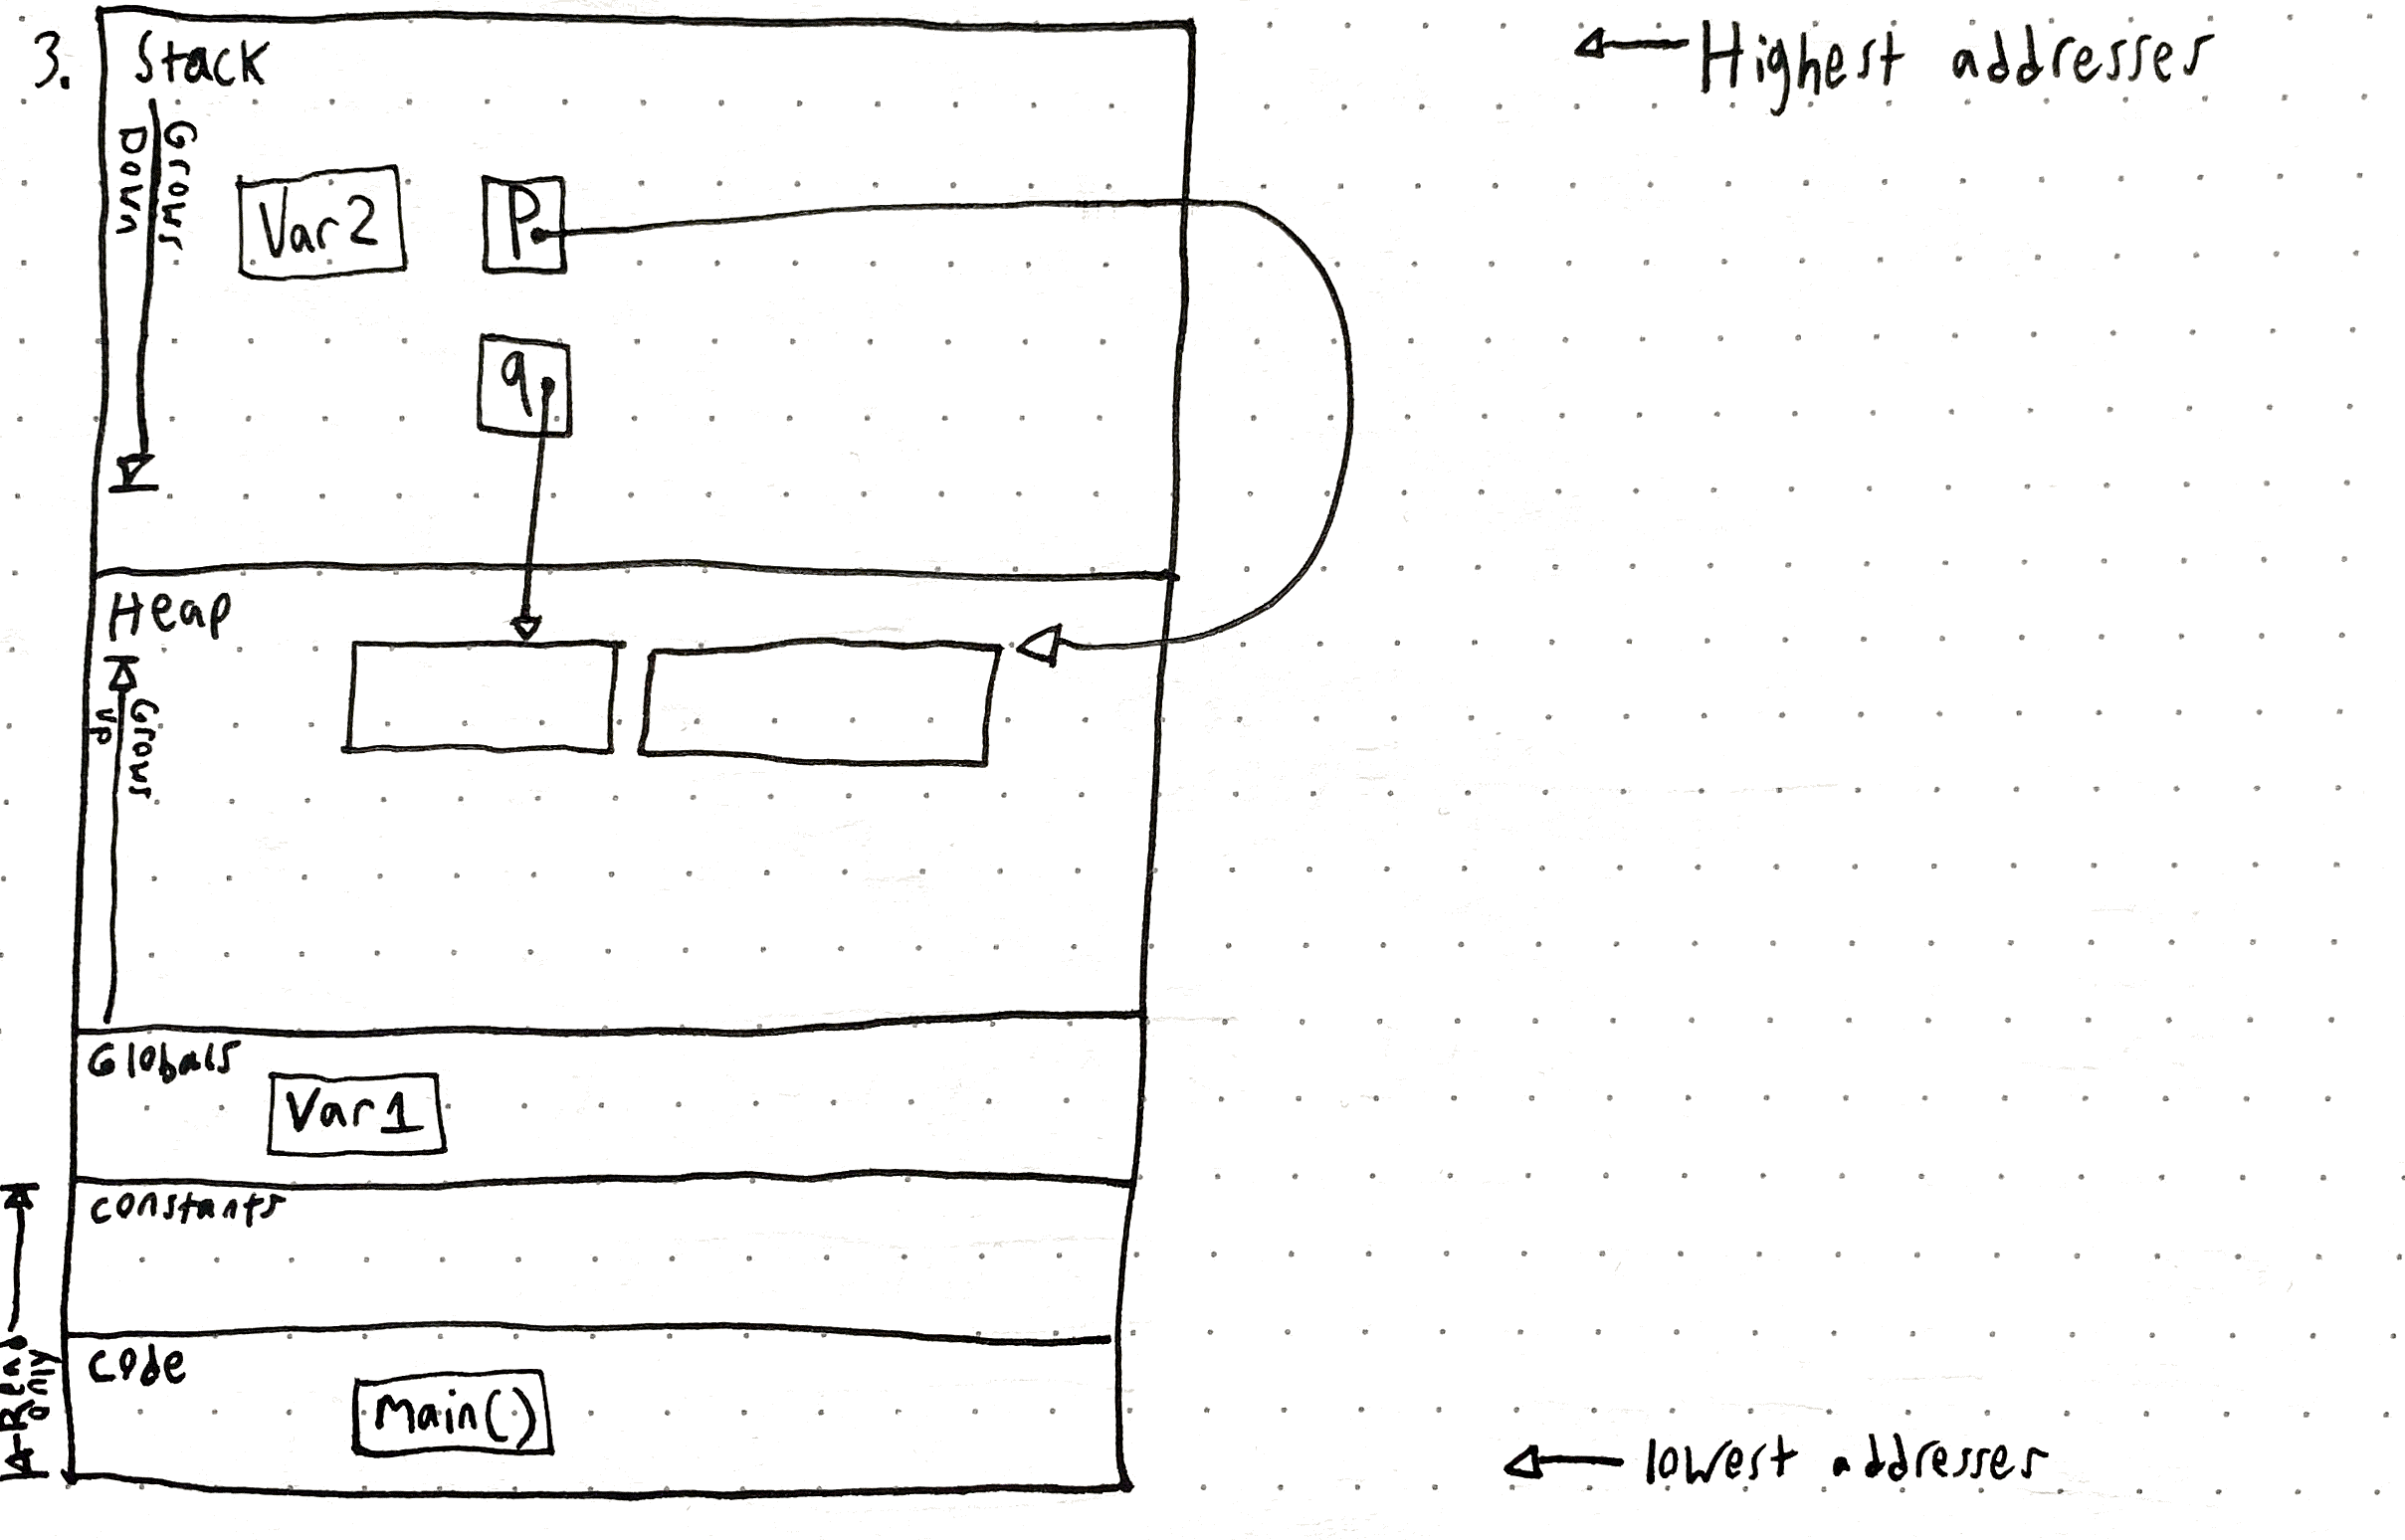 3.
Stack
Highest addresses
Grows
Down
Var2
P
q
Heap
Grows
up
Globals
Var1
constants
Read
only
code
main()
lowest addresses